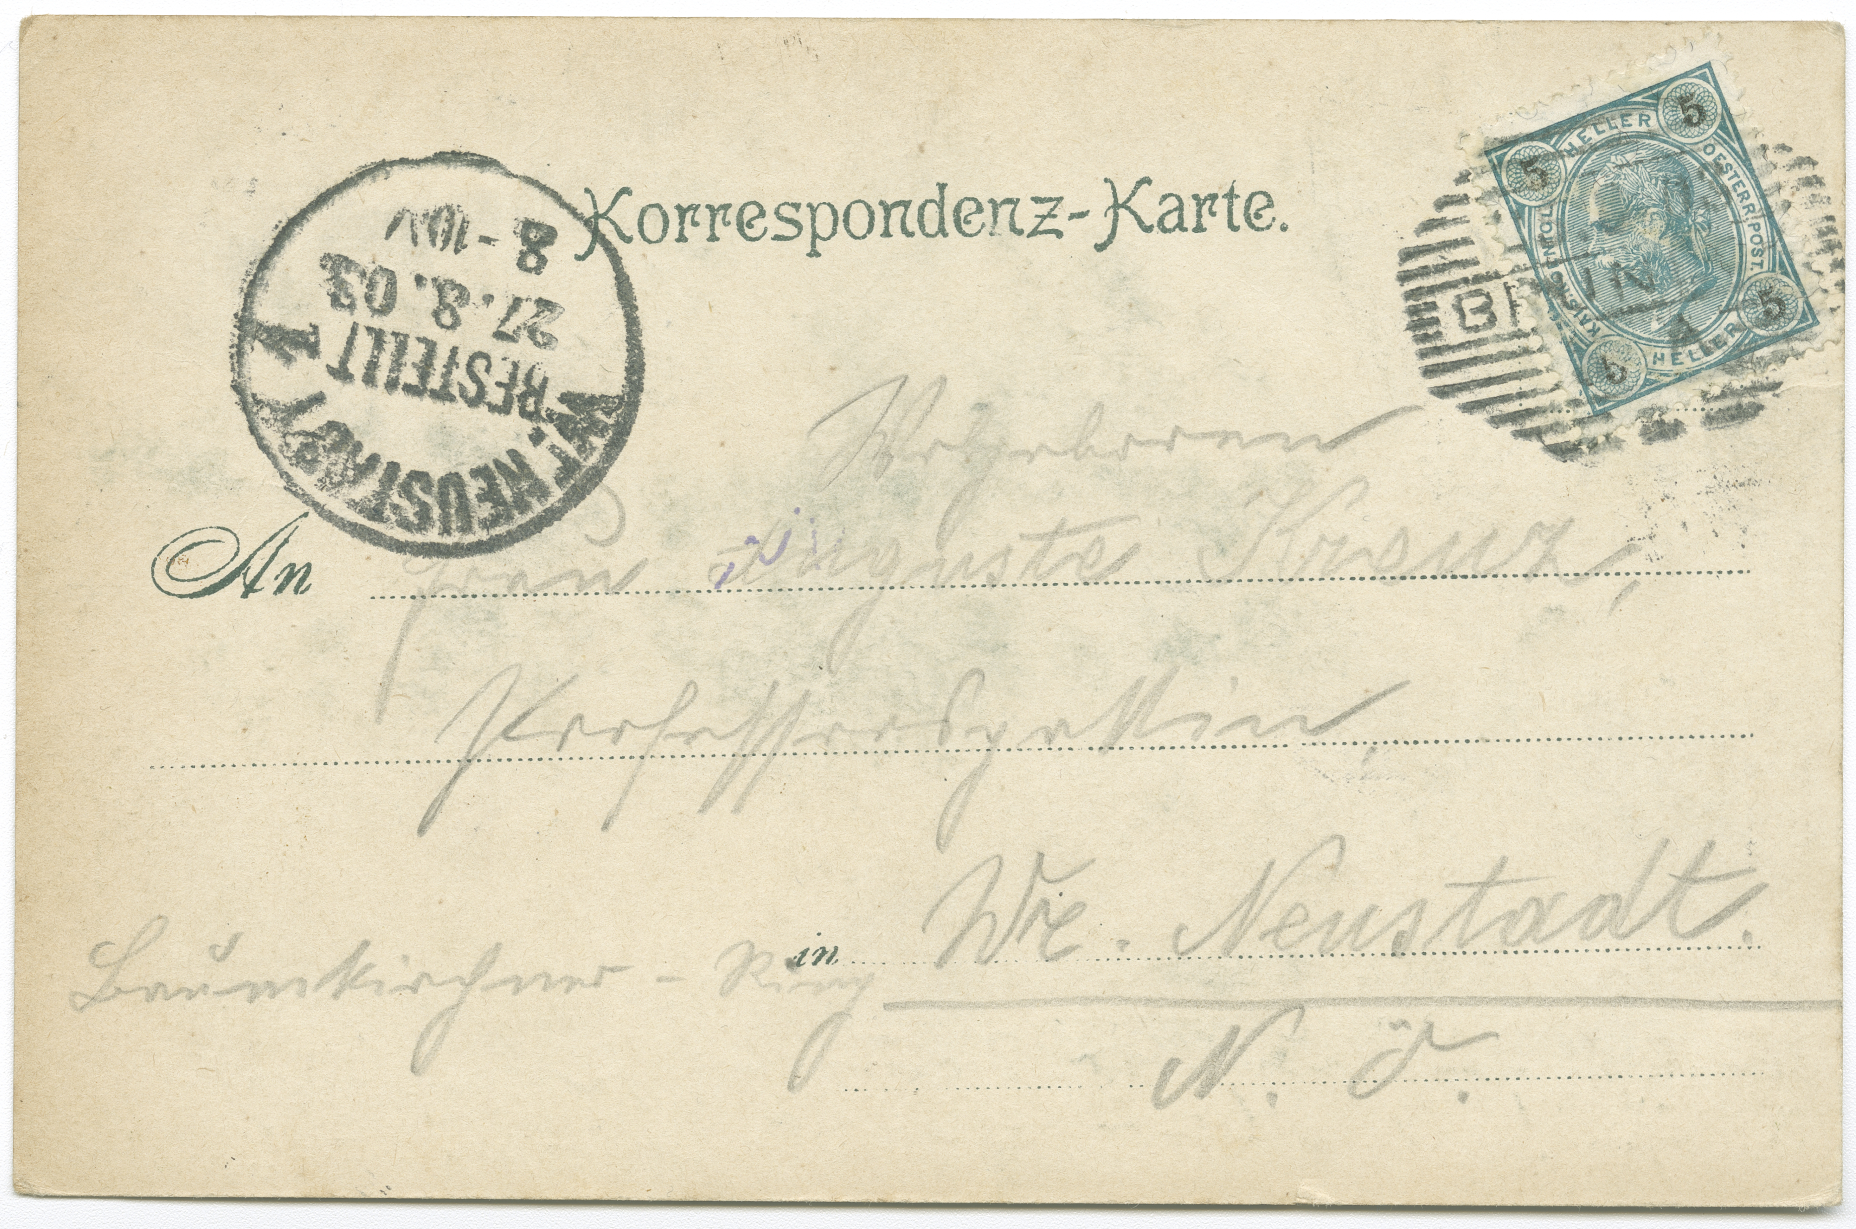 Korrespondenz-Karte.
5 HELLER 5
OESTERR. POST.
5 HELLER 5
BRÜNN
8 - 10 V
27. 8. 03
BESTELLT
WR. NEUSTADT 1
Wolgeboren
An Frau Auguste Kreuz,
Professorsgattin,
in Wr. Neustadt.
Baumkirchner-Ring
N. Ö.